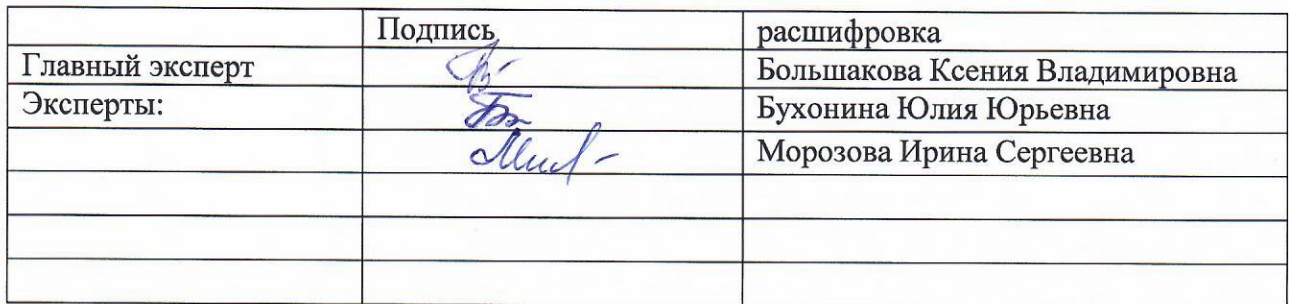 Подпись расшифровка
Главный эксперт Большакова Ксения Владимировна
Эксперты: Бухонина Юлия Юрьевна
Морозова Ирина Сергеевна